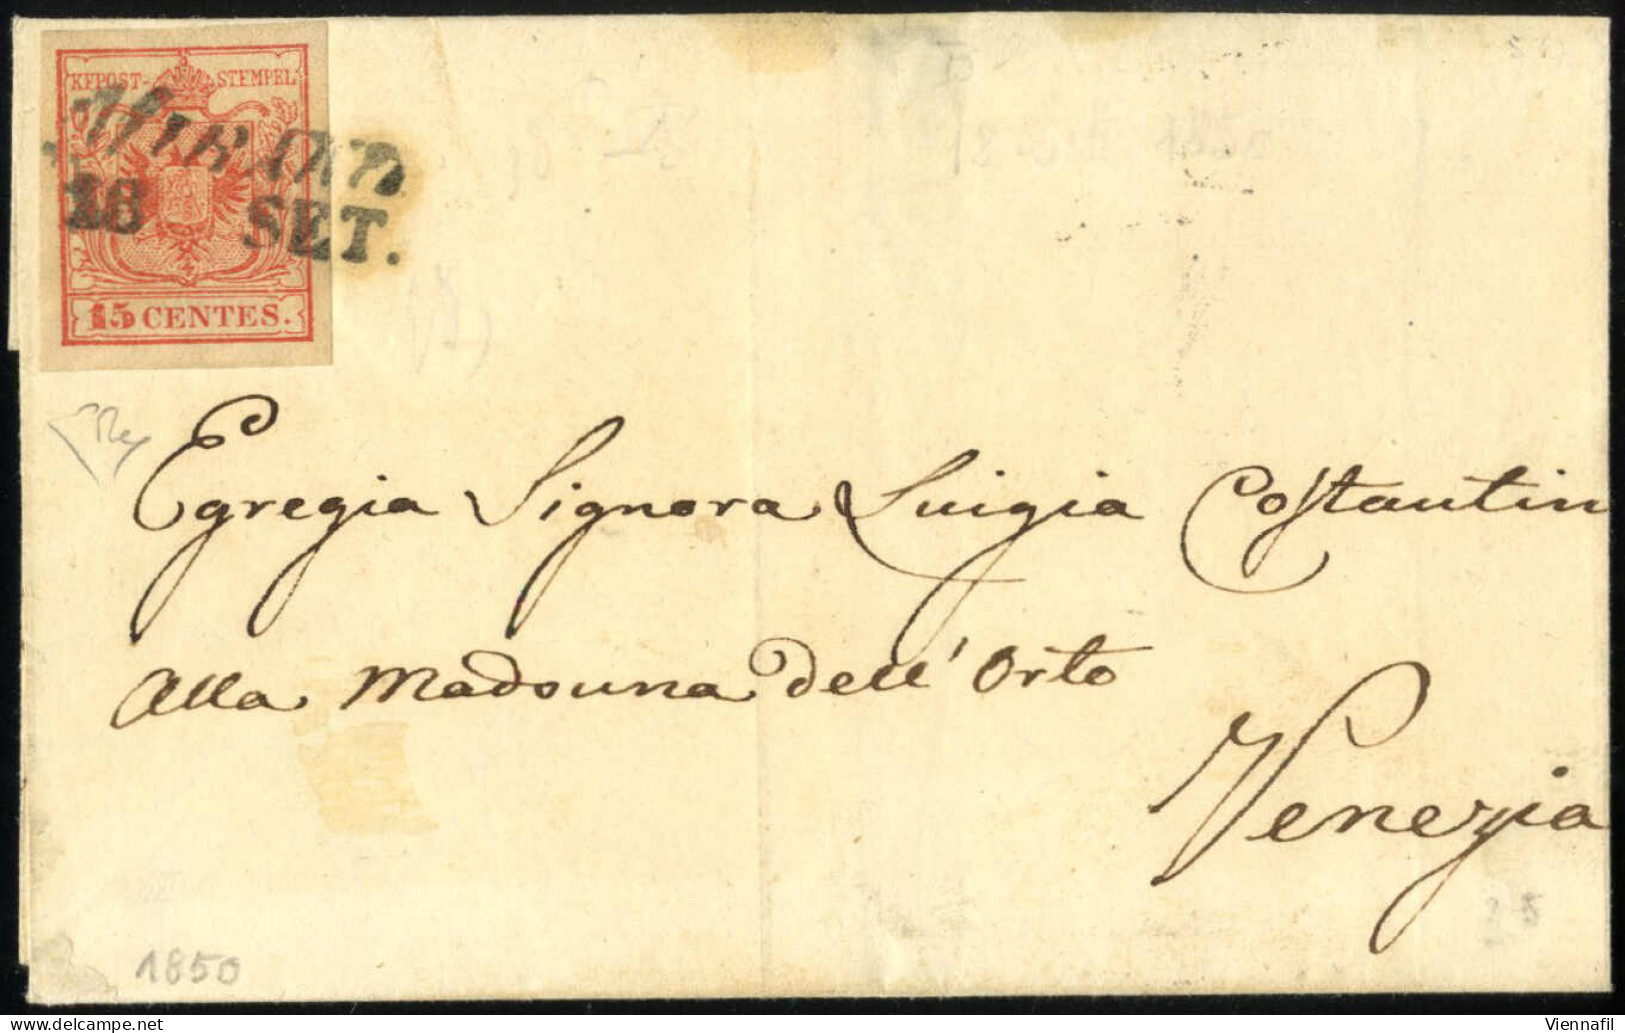 KKPOST-STEMPEL
MIRANO
18 SET.
15 CENTES.
Egregia Signora Luigia Costantin
Alla Madonna dell' Orto
Venezia
1850
Viennafil